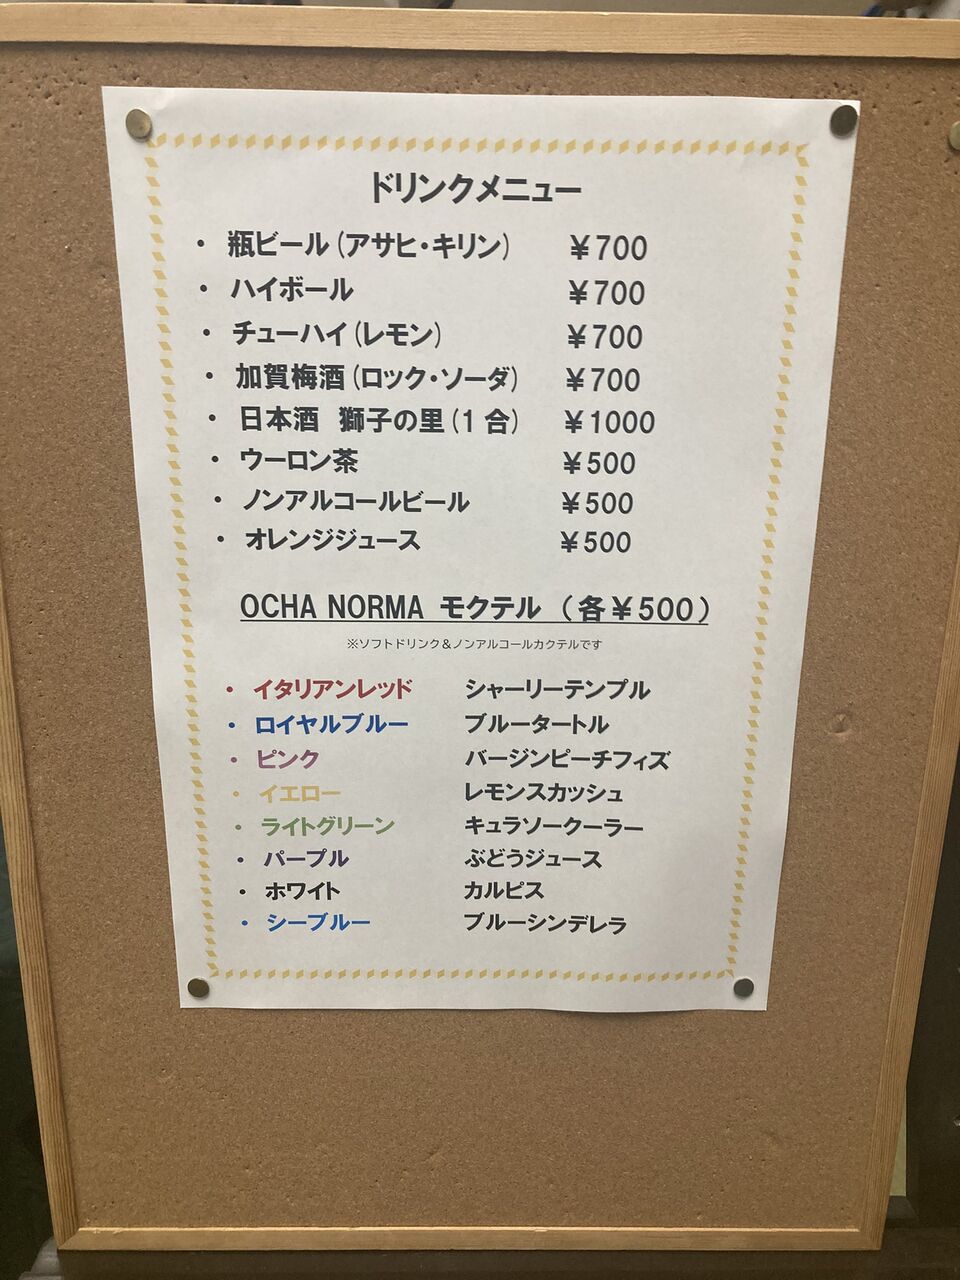 ドリンクメニュー
・ 瓶ビール(アサヒ・キリン) ¥700
・ ハイボール ¥700
・ チューハイ(レモン) ¥700
・ 加賀梅酒(ロック・ソーダ) ¥700
・ 日本酒 獅子の里(1合) ¥1000
・ ウーロン茶 ¥500
・ ノンアルコールビール ¥500
・ オレンジジュース ¥500
OCHA NORMA モクテル (各¥500)
※ソフトドリンク&ノンアルコールカクテルです
・ イタリアンレッド シャーリーテンプル
・ ロイヤルブルー ブルータートル
・ ピンク バージンピーチフィズ
・ イエロー レモンスカッシュ
・ ライトグリーン キュラソークーラー
・ パープル ぶどうジュース
・ ホワイト カルピス
・ シーブルー ブルーシンデレラ